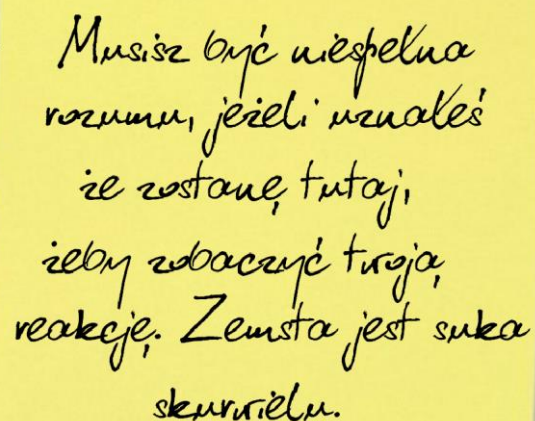 Musisz być niespełna
rozumu, jeżeli uznałeś
że zostanę tutaj,
żeby zobaczyć twoją
reakcję. Zemsta jest suka
skurwielu.